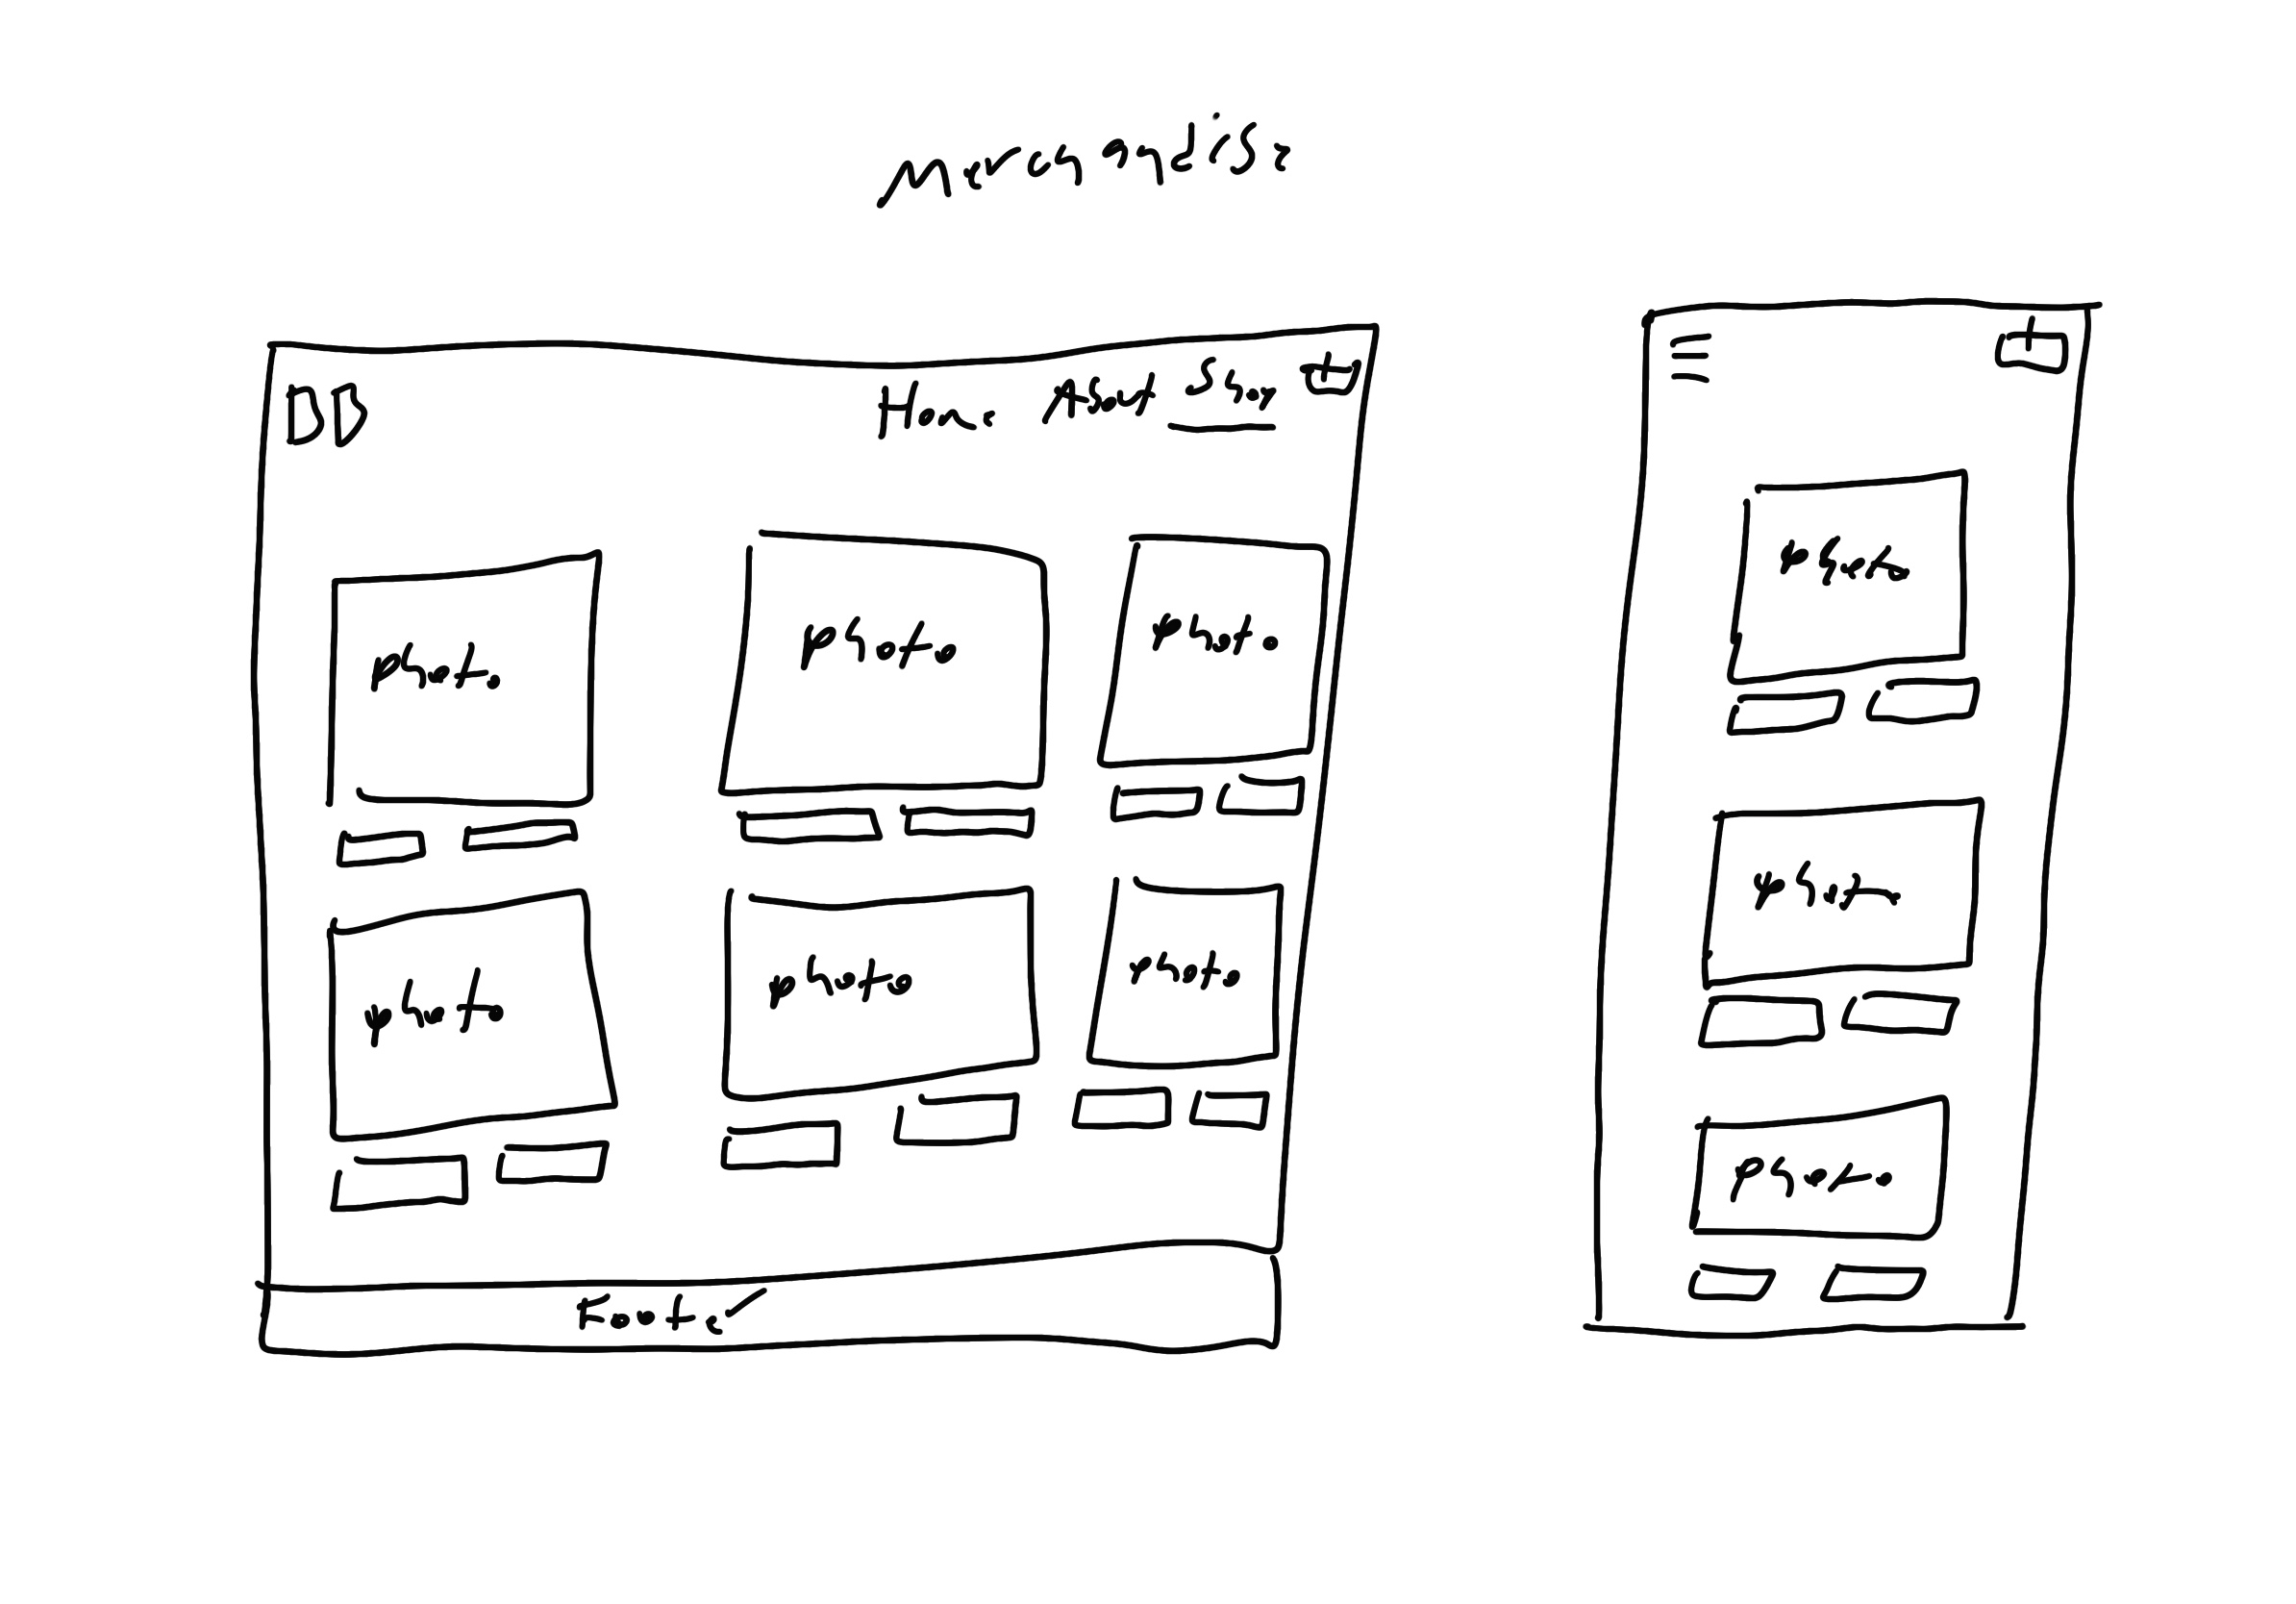 Merchandise
DD Home About Shop
photo photo photo
photo photo photo
Footer
photo
photo
photo